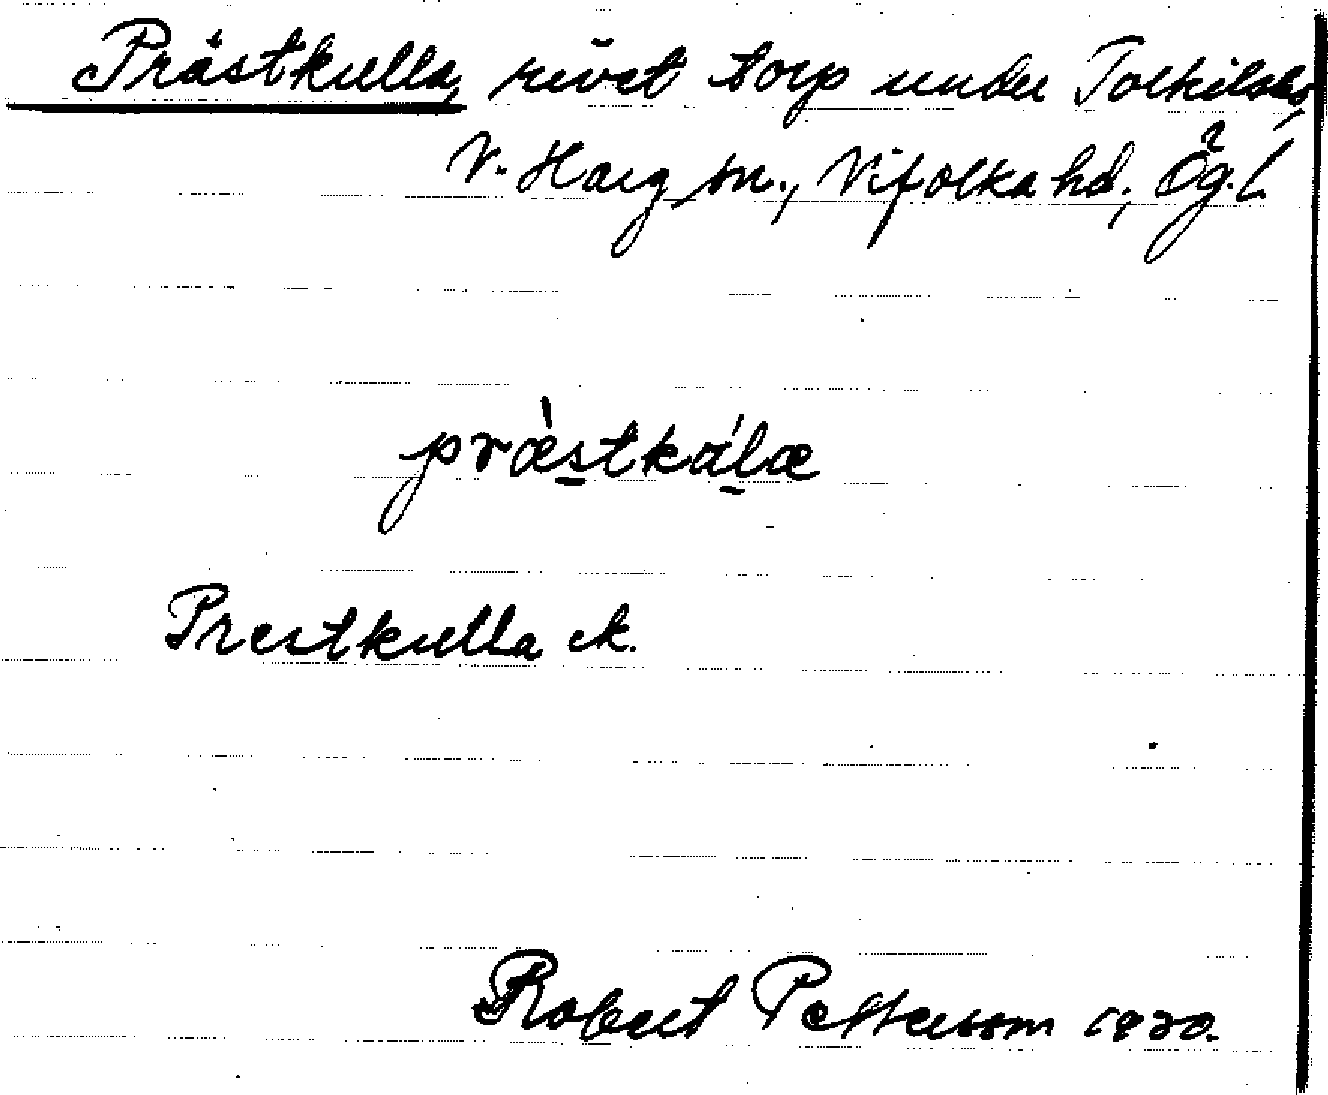 Prästkulla, rivet torp under Torkilsbo,
V. Harg sn., Vifolka hd., Ög. l.
præ̀stkálæ
Prestkulla ek.
Robert Pettersson 1920.